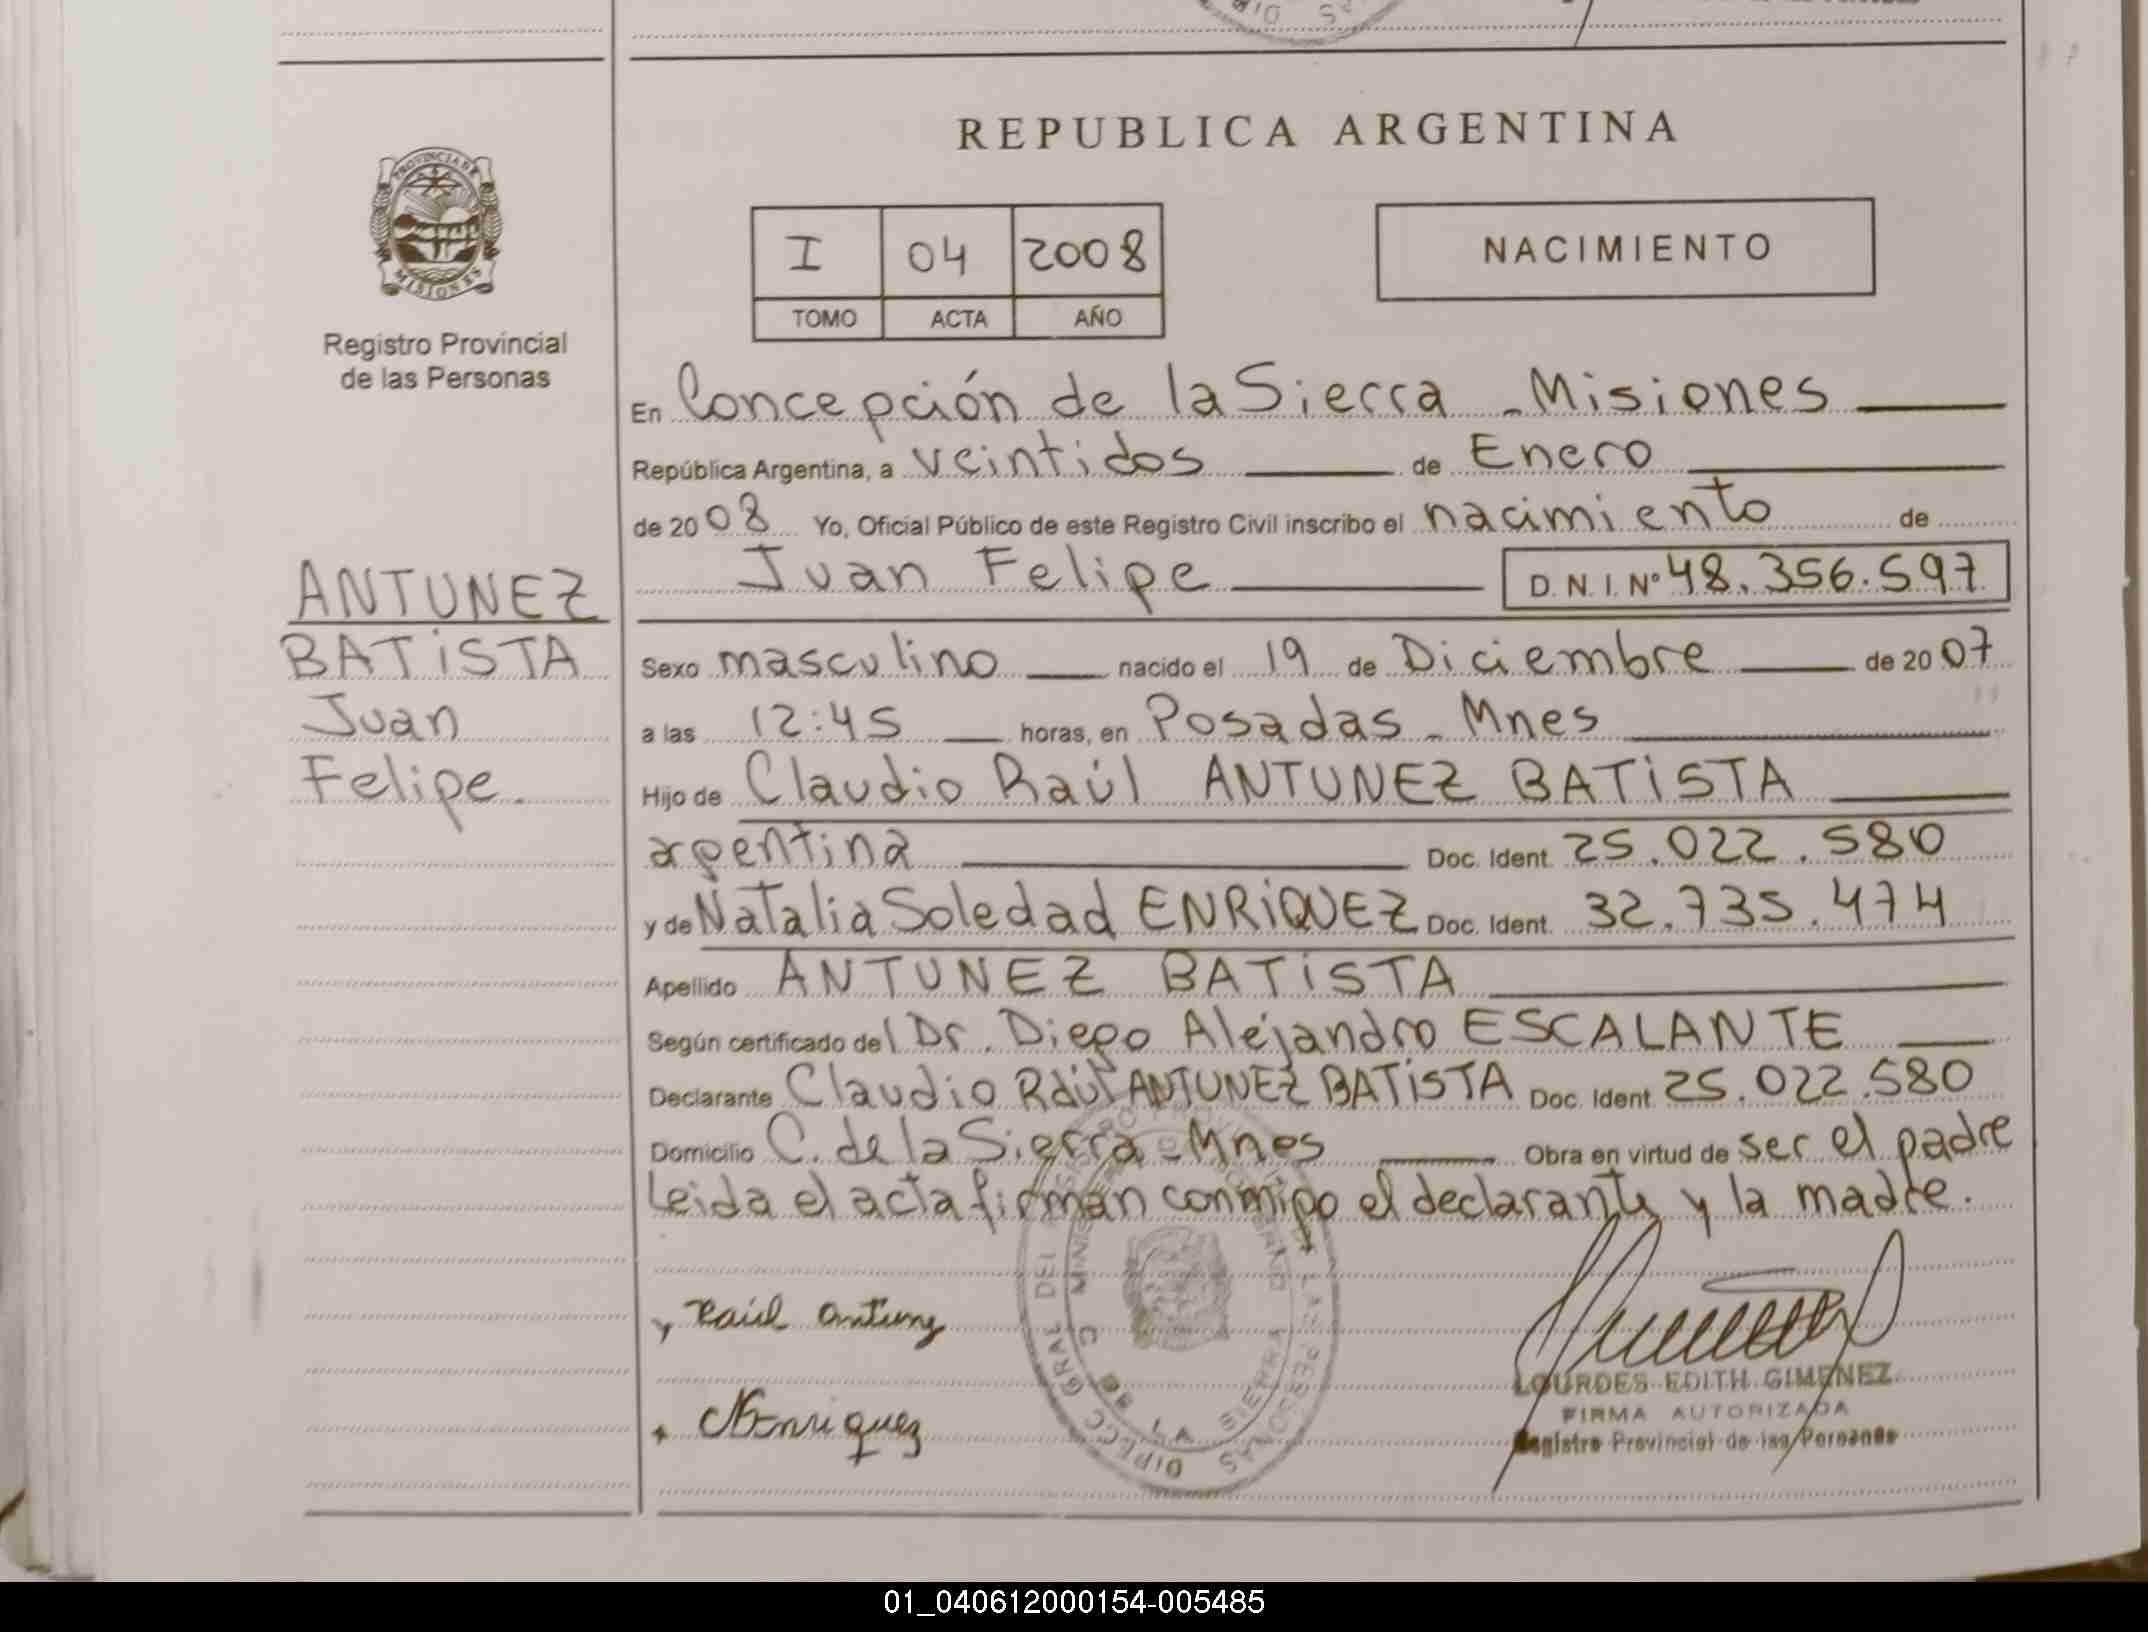 REPUBLICA ARGENTINA
PROVINCIA DE
MISIONES
Registro Provincial
de las Personas
I 04 2008
TOMO ACTA AÑO
NACIMIENTO
En Concepción de la Sierra - Misiones
República Argentina, a veintidos de Enero
de 2008 Yo, Oficial Público de este Registro Civil inscribo el nacimiento de
Juan Felipe D.N.I. Nº 48.356.597
ANTUNEZ
BATISTA
Juan
Felipe.
Sexo masculino nacido el 19 de Diciembre de 2007
a las 12:45 horas, en Posadas - Mnes
Hijo de Claudio Raúl ANTUNEZ BATISTA
argentina Doc. Ident. 25.022.580
y de Natalia Soledad ENRIQUEZ Doc. Ident. 32.735.474
Apellido ANTUNEZ BATISTA
Según certificado del Dr. Diego Alejandro ESCALANTE
Declarante Claudio Raúl ANTUNEZ BATISTA Doc. Ident. 25.022.580
Domicilio C. de la Sierra - Mnes Obra en virtud de ser el padre
Leida el acta firman conmigo el declarante y la madre.
Raúl Antunez
NEnriquez
LOURDES EDITH GIMENEZ
FIRMA AUTORIZADA
Registro Provincial de las Personas
01_040612000154-005485